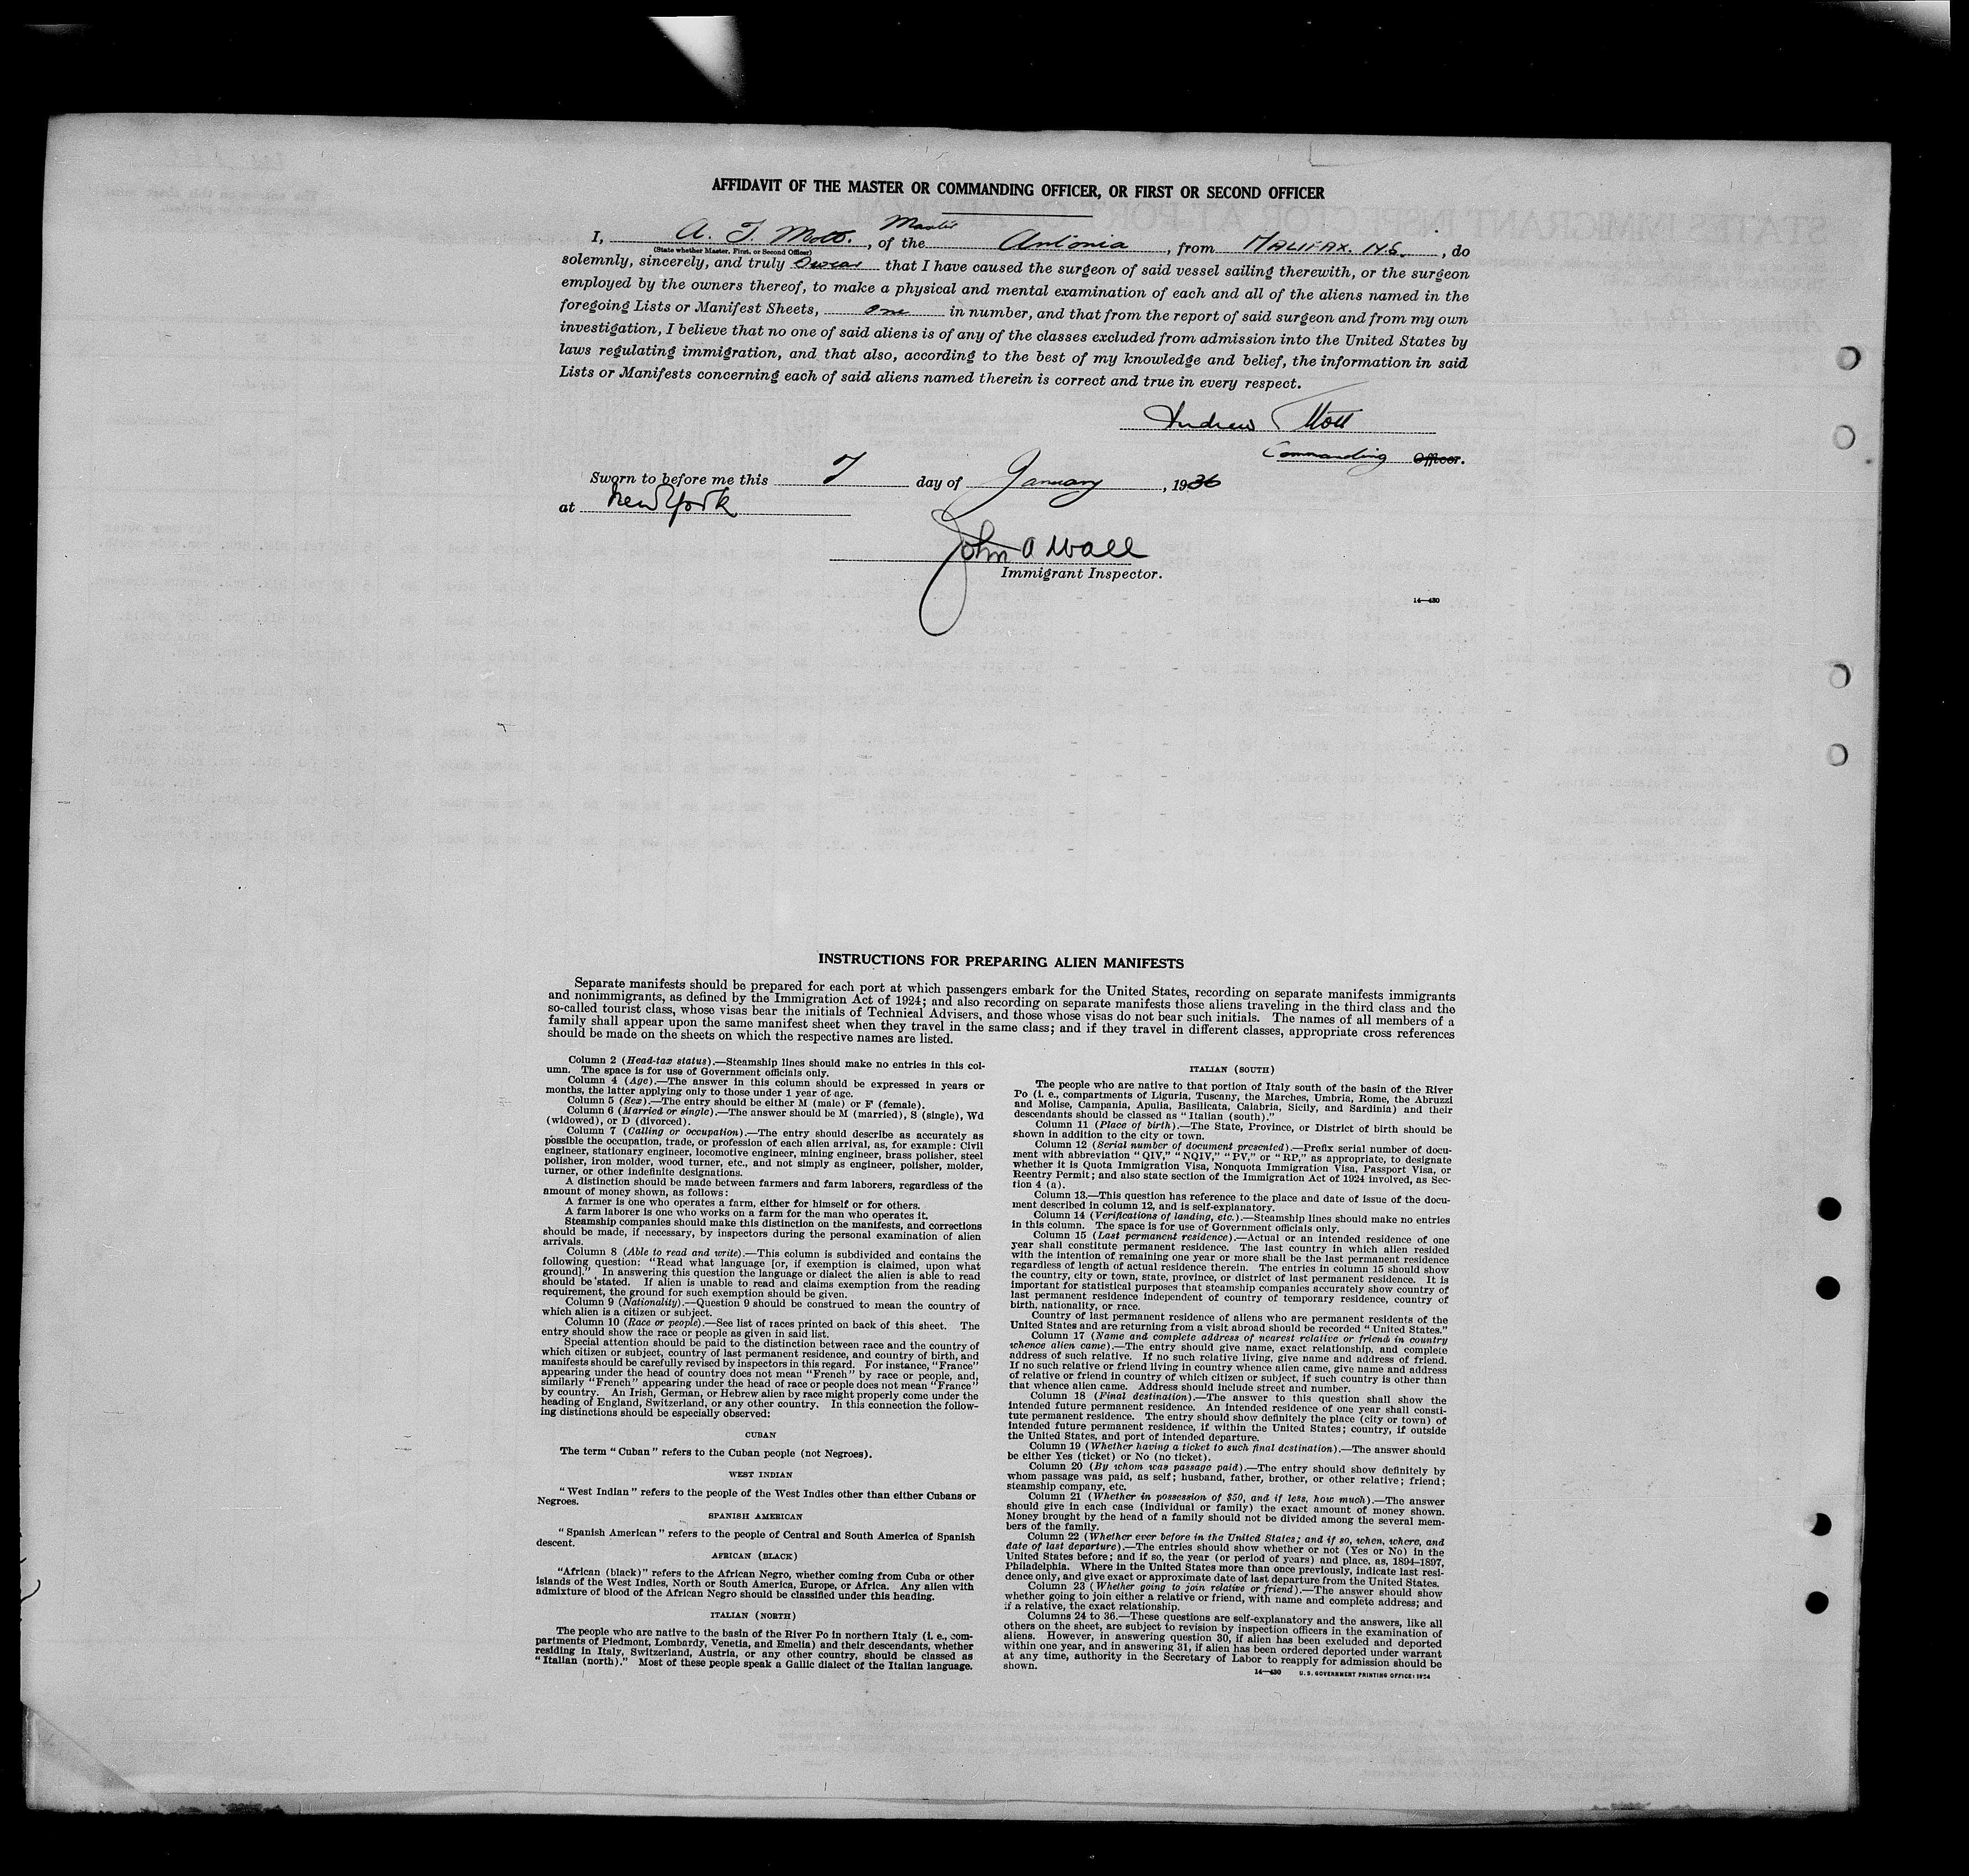 AFFIDAVIT OF THE MASTER OR COMMANDING OFFICER, OR FIRST OR SECOND OFFICER
I, A. T. Mott. Master, of the Antonia, from HALIFAX. N.S., do
(State whether Master, First, or Second Officer)
solemnly, sincerely, and truly swear that I have caused the surgeon of said vessel sailing therewith, or the surgeon
employed by the owners thereof, to make a physical and mental examination of each and all of the aliens named in the
foregoing Lists or Manifest Sheets, one in number, and that from the report of said surgeon and from my own
investigation, I believe that no one of said aliens is of any of the classes excluded from admission into the United States by
laws regulating immigration, and that also, according to the best of my knowledge and belief, the information in said
Lists or Manifests concerning each of said aliens named therein is correct and true in every respect.
Andrew Mott
Commanding Officer.
Sworn to before me this 7 day of January, 1936
at New York
John A Wall
Immigrant Inspector.
14—430
INSTRUCTIONS FOR PREPARING ALIEN MANIFESTS
Separate manifests should be prepared for each port at which passengers embark for the United States, recording on separate manifests immigrants
and nonimmigrants, as defined by the Immigration Act of 1924; and also recording on separate manifests those aliens traveling in the third class and the
so-called tourist class, whose visas bear the initials of Technical Advisers, and those whose visas do not bear such initials. The names of all members of a
family shall appear upon the same manifest sheet when they travel in the same class; and if they travel in different classes, appropriate cross references
should be made on the sheets on which the respective names are listed.
Column 2 (Head-tax status).—Steamship lines should make no entries in this col-
umn. The space is for use of Government officials only.
Column 4 (Age).—The answer in this column should be expressed in years or
months, the latter applying only to those under 1 year of age.
Column 5 (Sex).—The entry should be either M (male) or F (female).
Column 6 (Married or single).—The answer should be M (married), S (single), Wd
(widowed), or D (divorced).
Column 7 (Calling or occupation).—The entry should describe as accurately as
possible the occupation, trade, or profession of each alien arrival, as, for example: Civil
engineer, stationary engineer, locomotive engineer, mining engineer, brass polisher, steel
polisher, iron molder, wood turner, etc., and not simply as engineer, polisher, molder,
turner, or other indefinite designations.
A distinction should be made between farmers and farm laborers, regardless of the
amount of money shown, as follows:
A farmer is one who operates a farm, either for himself or for others.
A farm laborer is one who works on a farm for the man who operates it.
Steamship companies should make this distinction on the manifests, and corrections
should be made, if necessary, by inspectors during the personal examination of alien
arrivals.
Column 8 (Able to read and write).—This column is subdivided and contains the
following question: "Read what language [or, if exemption is claimed, upon what
ground]." In answering this question the language or dialect the alien is able to read
should be stated. If alien is unable to read and claims exemption from the reading
requirement, the ground for such exemption should be given.
Column 9 (Nationality).—Question 9 should be construed to mean the country of
which alien is a citizen or subject.
Column 10 (Race or people).—See list of races printed on back of this sheet. The
entry should show the race or people as given in said list.
Special attention should be paid to the distinction between race and the country of
which citizen or subject, country of last permanent residence, and country of birth, and
manifests should be carefully revised by inspectors in this regard. For instance, "France"
appearing under the head of country does not mean "French" by race or people, and,
similarly "French" appearing under the head of race or people does not mean "France"
by country. An Irish, German, or Hebrew alien by race might properly come under the
heading of England, Switzerland, or any other country. In this connection the follow-
ing distinctions should be especially observed:
CUBAN
The term "Cuban" refers to the Cuban people (not Negroes).
WEST INDIAN
"West Indian" refers to the people of the West Indies other than either Cubans or
Negroes.
SPANISH AMERICAN
"Spanish American" refers to the people of Central and South America of Spanish
descent.
AFRICAN (BLACK)
"African (black)" refers to the African Negro, whether coming from Cuba or other
islands of the West Indies, North or South America, Europe, or Africa. Any alien with
admixture of blood of the African Negro should be classified under this heading.
ITALIAN (NORTH)
The people who are native to the basin of the River Po in northern Italy (i. e., com-
partments of Piedmont, Lombardy, Venetia, and Emelia) and their descendants, whether
residing in Italy, Switzerland, Austria, or any other country, should be classed as
"Italian (north)." Most of these people speak a Gallic dialect of the Italian language.
ITALIAN (SOUTH)
The people who are native to that portion of Italy south of the basin of the River
Po (i. e., compartments of Liguria, Tuscany, the Marches, Umbria, Rome, the Abruzzi
and Molise, Campania, Apulia, Basilicata, Calabria, Sicily, and Sardinia) and their
descendants should be classed as "Italian (south)."
Column 11 (Place of birth).—The State, Province, or District of birth should be
shown in addition to the city or town.
Column 12 (Serial number of document presented).—Prefix serial number of docu-
ment with abbreviation "QIV," "NQIV," "PV," or "RP," as appropriate, to designate
whether it is Quota Immigration Visa, Nonquota Immigration Visa, Passport Visa, or
Reentry Permit; and also state section of the Immigration Act of 1924 involved, as Sec-
tion 4 (a).
Column 13.—This question has reference to the place and date of issue of the docu-
ment described in column 12, and is self-explanatory.
Column 14 (Verifications of landing, etc.).—Steamship lines should make no entries
in this column. The space is for use of Government officials only.
Column 15 (Last permanent residence).—Actual or an intended residence of one
year shall constitute permanent residence. The last country in which alien resided
with the intention of remaining one year or more shall be the last permanent residence
regardless of length of actual residence therein. The entries in column 15 should show
the country, city or town, state, province, or district of last permanent residence. It is
important for statistical purposes that steamship companies accurately show country of
last permanent residence independent of country of temporary residence, country of
birth, nationality, or race.
Country of last permanent residence of aliens who are permanent residents of the
United States and are returning from a visit abroad should be recorded "United States."
Column 17 (Name and complete address of nearest relative or friend in country
whence alien came).—The entry should give name, exact relationship, and complete
address of such relative. If no such relative living, give name and address of friend.
If no such relative or friend living in country whence alien came, give name and address
of relative or friend in country of which citizen or subject, if such country is other than
that whence alien came. Address should include street and number.
Column 18 (Final destination).—The answer to this question shall show the
intended future permanent residence. An intended residence of one year shall consti-
tute permanent residence. The entry should show definitely the place (city or town) of
intended future permanent residence, if within the United States; country, if outside
the United States, and port of intended departure.
Column 19 (Whether having a ticket to such final destination).—The answer should
be either Yes (ticket) or No (no ticket).
Column 20 (By whom was passage paid).—The entry should show definitely by
whom passage was paid, as self; husband, father, brother, or other relative; friend;
steamship company, etc.
Column 21 (Whether in possession of $50, and if less, how much).—The answer
should give in each case (individual or family) the exact amount of money shown.
Money brought by the head of a family should not be divided among the several mem-
bers of the family.
Column 22 (Whether ever before in the United States; and if so, when, where, and
date of last departure).—The entries should show whether or not (Yes or No) in the
United States before; and if so, the year (or period of years) and place, as, 1894–1897,
Philadelphia. Where in the United States more than once previously, indicate last resi-
dence only, and give exact or approximate date of last departure from the United States.
Column 23 (Whether going to join relative or friend).—The answer should show
whether going to join either a relative or friend, with name and complete address; and
if a relative, the exact relationship.
Columns 24 to 36.—These questions are self-explanatory and the answers, like all
others on the sheet, are subject to revision by inspection officers in the examination of
aliens. However, in answering question 30, if alien has been excluded and deported
within one year, and in answering 31, if alien has been ordered deported under warrant
at any time, authority in the Secretary of Labor to reapply for admission should be
shown.
14—430 U. S. GOVERNMENT PRINTING OFFICE: 1934